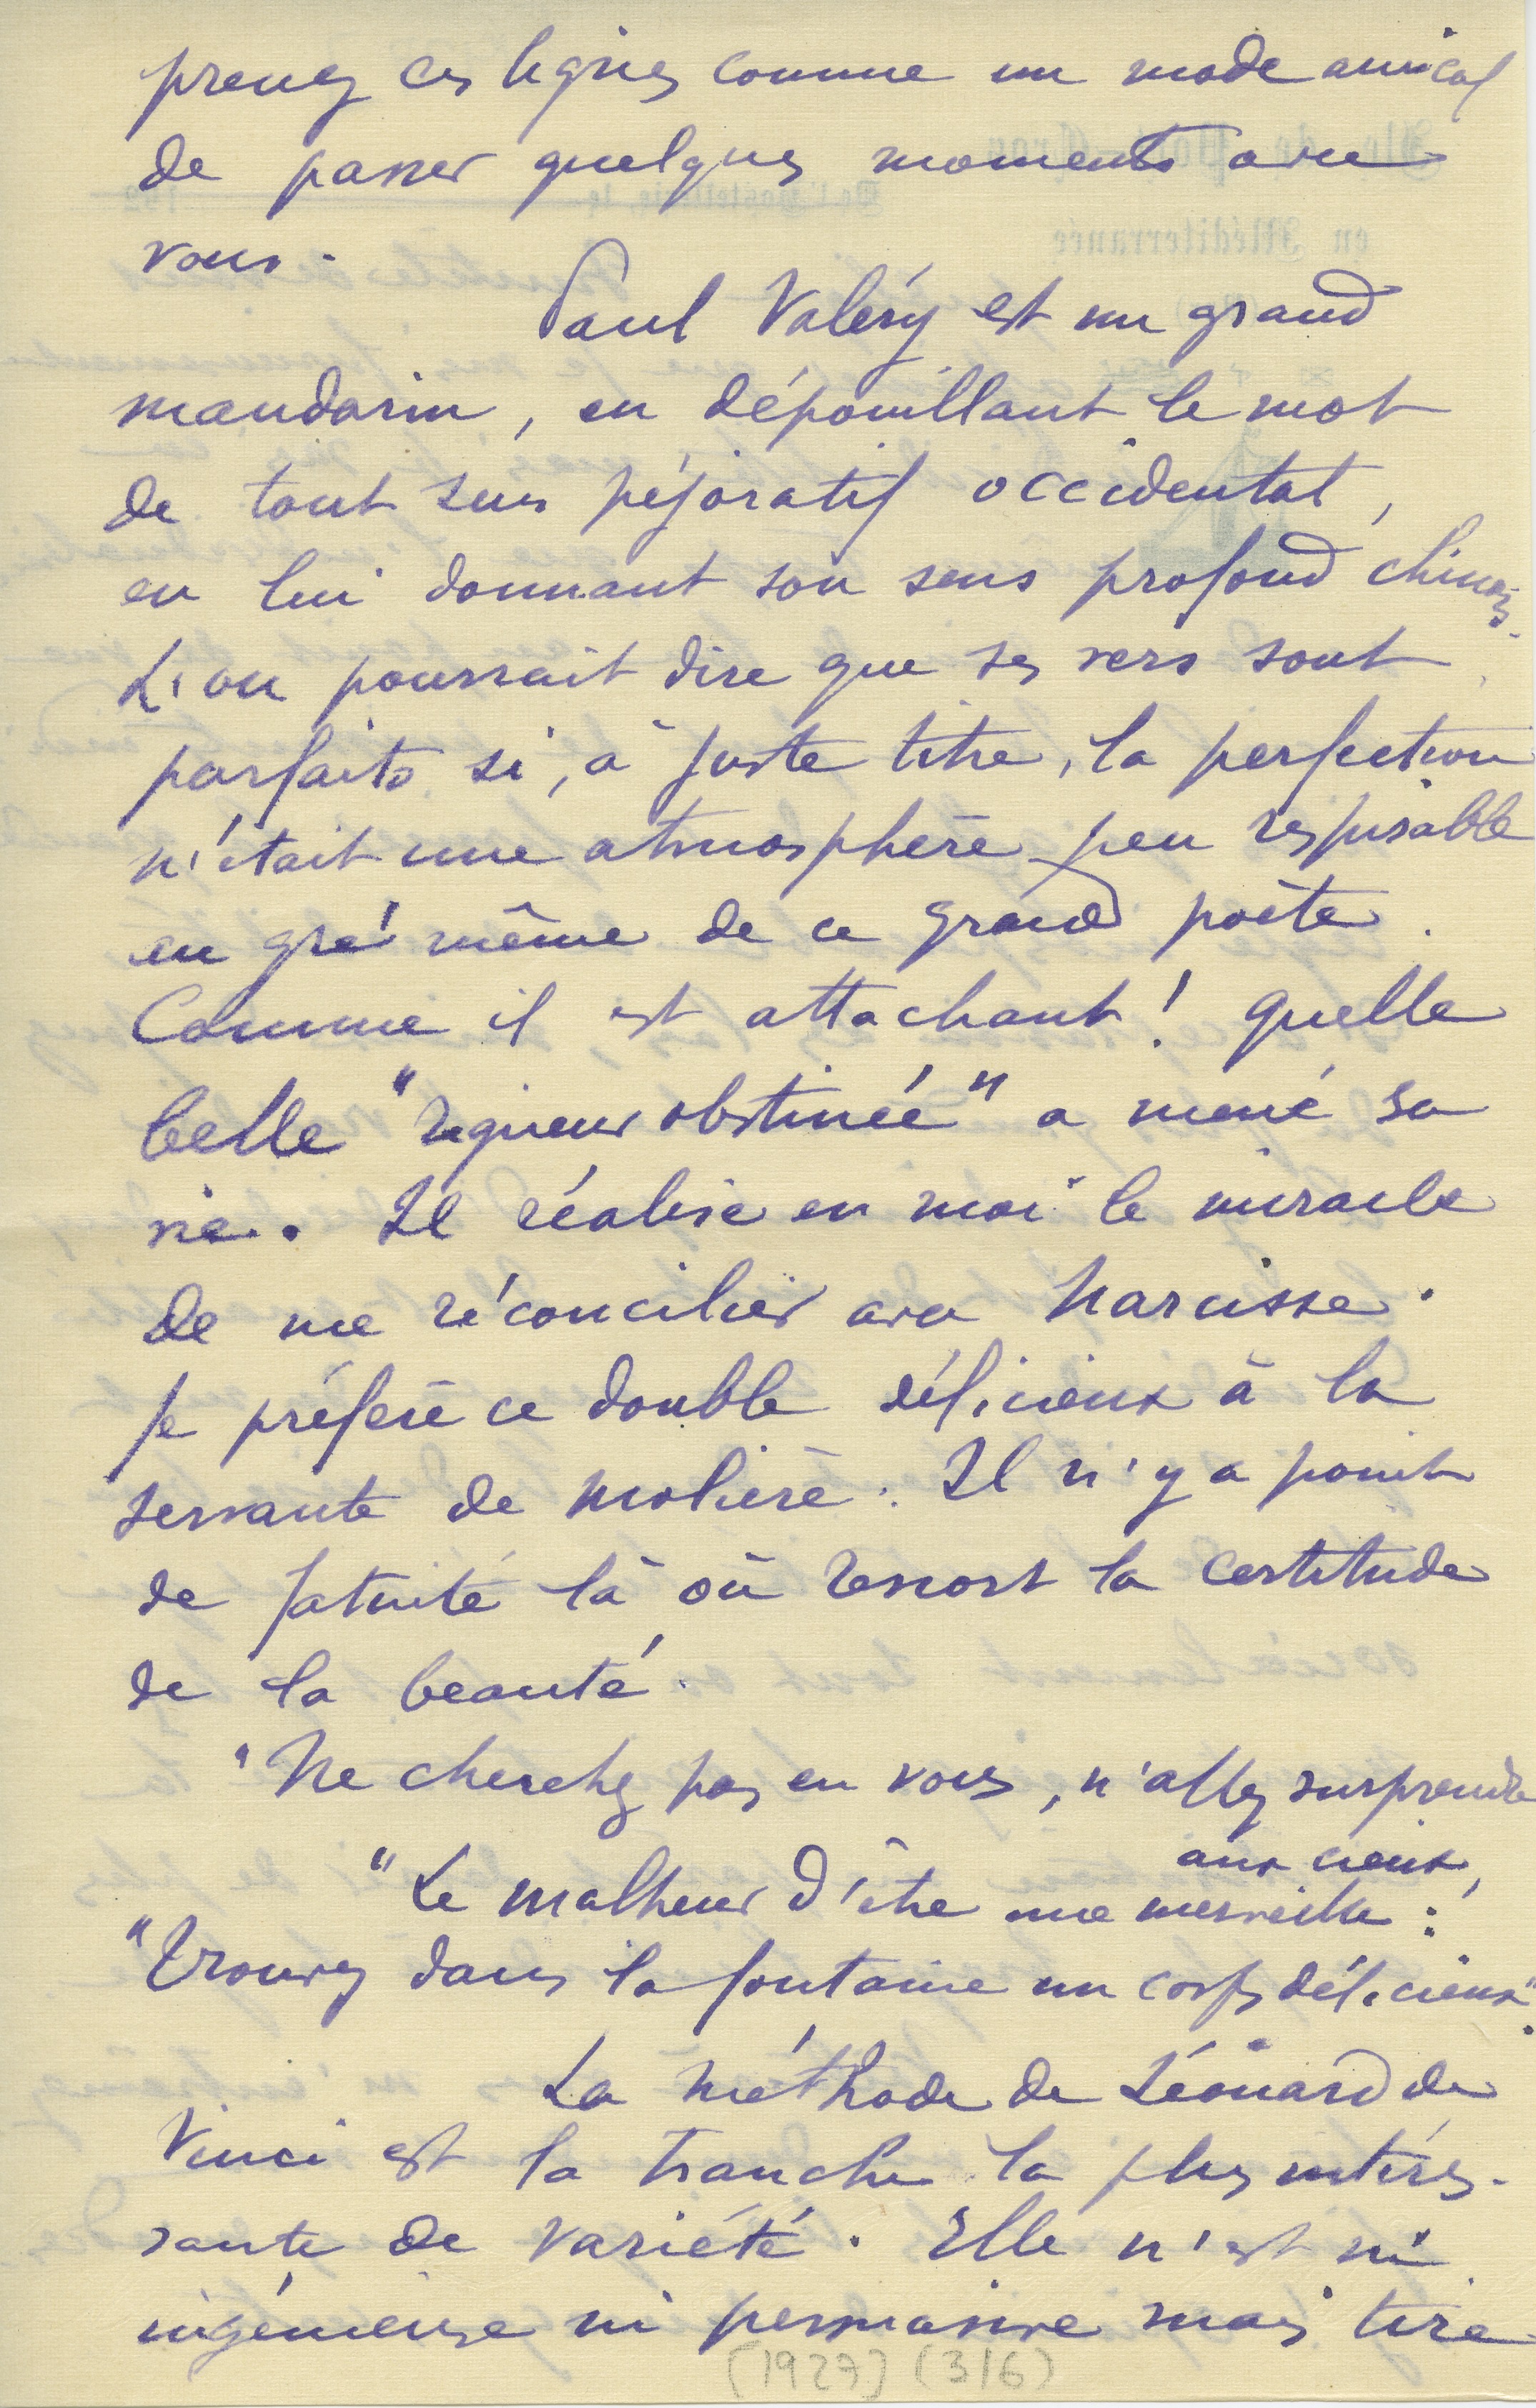 prenez ces lignes comme un mode amical
de passer quelques moments avec
vous.
Paul Valéry est un grand
mandarin, en dépouillant le mot
de tout sens péjoratif occidental,
en lui donnant son sens profond chinois.
L'on pourrait dire que ses vers sont
parfaits si, à juste titre, la perfection
n'était une atmosphère peu respirable
au gré même de ce grand poète.
Comme il est attachant! Quelle
belle "rigueur obstinée" a mené sa
vie. Il réalise en moi le miracle
de me réconcilier avec Narcisse.
Je préfère ce double délicieux à la
servante de Molière. Il n'y a point
de fatuité là où ressort la certitude
de la beauté.
"Ne cherchez pas en vous, n'allez surprendre
aux cieux,
"Le malheur d'être une merveille:
"Trouvez dans la fontaine un corps délicieux".
La méthode de Léonard de
Vinci est la tranche la plus intéres-
sante de variété. Elle n'est ni
ingénieuse ni persuasive mais tire
[1927] (3/6)